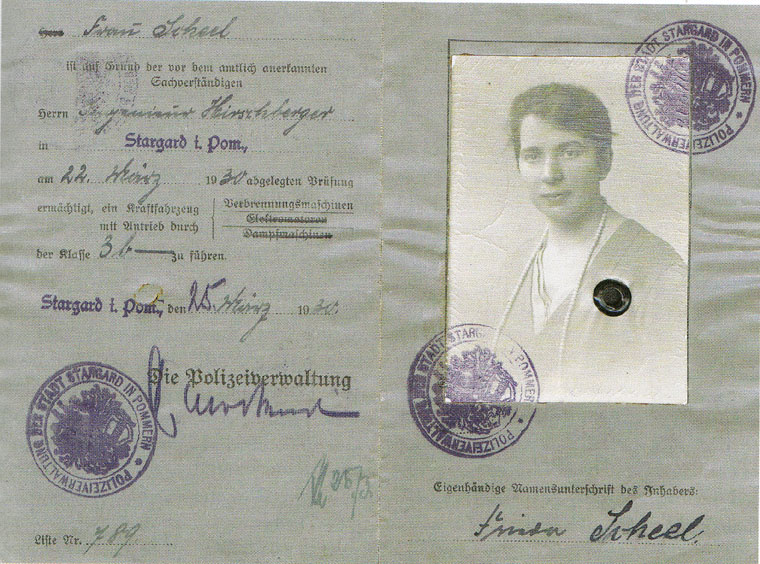 Frau Scheel
ist auf Grund der vor dem amtlich anerkannten
Sachverständigen
Herrn Ingenieur Hirschberger
in Stargard i. Pom.,
am 22. März 1930 abgelegten Prüfung
ermächtigt, ein Kraftfahrzeug
mit Antrieb durch
Verbrennungsmaschinen
Elektromotoren
Dampfmaschinen
der Klasse 3b zu führen.
Stargard i. Pom., den 25. März 1930.
Die Polizeiverwaltung
POLIZEIVERWALTUNG DER STADT STARGARD IN POMMERN
Liste Nr. 789
POLIZEIVERWALTUNG DER STADT STARGARD IN POMMERN
POLIZEIVERWALTUNG DER STADT STARGARD IN POMMERN
Eigenhändige Namensunterschrift des Inhabers:
Scheel.